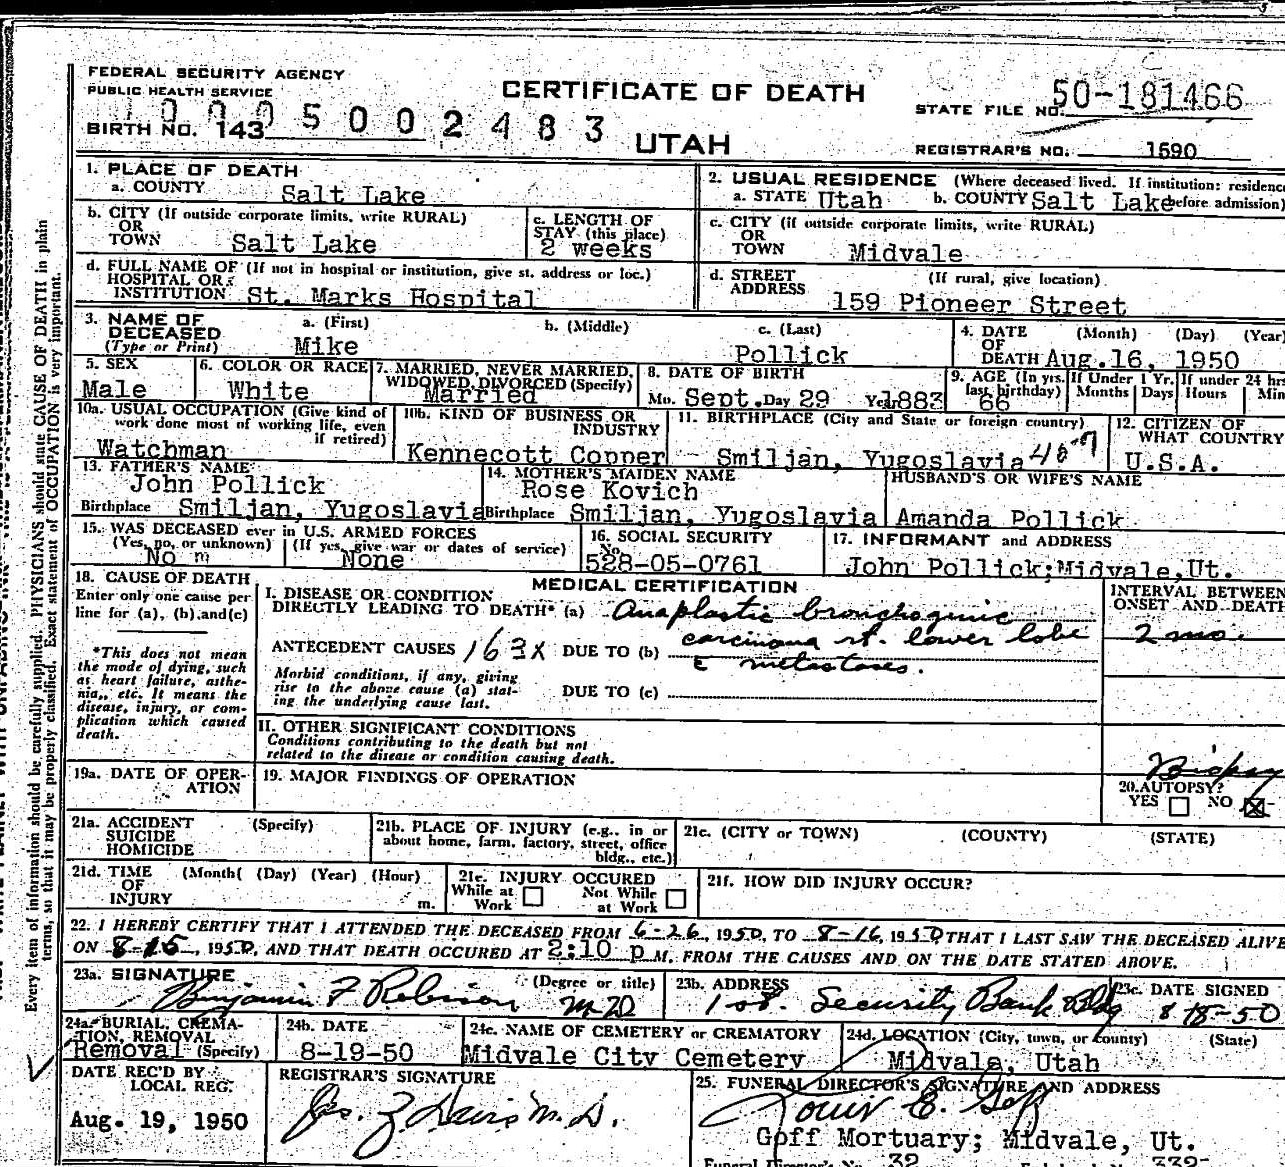 FEDERAL SECURITY AGENCY
PUBLIC HEALTH SERVICE
CERTIFICATE OF DEATH
STATE FILE NO. 50-181466
BIRTH NO. 143 5002483
UTAH
REGISTRAR'S NO. 1590
1. PLACE OF DEATH
a. COUNTY Salt Lake
2. USUAL RESIDENCE (Where deceased lived. If institution: residence before admission)
a. STATE Utah b. COUNTY Salt Lake
b. CITY (If outside corporate limits, write RURAL)
OR
TOWN Salt Lake
c. LENGTH OF
STAY (this place)
2 weeks
c. CITY (if outside corporate limits, write RURAL)
OR
TOWN Midvale
d. FULL NAME OF (If not in hospital or institution, give st. address or loc.)
HOSPITAL OR
INSTITUTION St. Marks Hospital
d. STREET (If rural, give location)
ADDRESS 159 Pioneer Street
3. NAME OF a. (First) b. (Middle) c. (Last)
DECEASED
(Type or Print) Mike Pollick
4. DATE (Month) (Day) (Year)
OF
DEATH Aug.16, 1950
5. SEX
Male
6. COLOR OR RACE
White
7. MARRIED, NEVER MARRIED,
WIDOWED, DIVORCED (Specify)
Married
8. DATE OF BIRTH
Mo. Sept. Day 29 Year 1883
9. AGE (In yrs. last birthday) If Under 1 Yr. If under 24 hrs
66 Months Days Hours Min
10a. USUAL OCCUPATION (Give kind of
work done most of working life, even
if retired)
Watchman
10b. KIND OF BUSINESS OR
INDUSTRY
Kennecott Copper
11. BIRTHPLACE (City and State or foreign country)
Smiljan, Yugoslavia
12. CITIZEN OF
WHAT COUNTRY
U.S.A.
13. FATHER'S NAME
John Pollick
Birthplace Smiljan, Yugoslavia
14. MOTHER'S MAIDEN NAME
Rose Kovich
Birthplace Smiljan, Yugoslavia
HUSBAND'S OR WIFE'S NAME
Amanda Pollick
15. WAS DECEASED ever in U.S. ARMED FORCES
(Yes, no, or unknown) (If yes, give war or dates of service)
No None
16. SOCIAL SECURITY
No.
528-05-0761
17. INFORMANT and ADDRESS
John Pollick;Midvale,Ut.
18. CAUSE OF DEATH
Enter only one cause per
line for (a), (b), and (c)
*This does not mean
the mode of dying, such
as heart failure, asthe-
nia, etc. It means the
disease, injury, or com-
plication which caused
death.
MEDICAL CERTIFICATION
I. DISEASE OR CONDITION
DIRECTLY LEADING TO DEATH* (a) Anaplastic bronchogenic
ANTECEDENT CAUSES 163X DUE TO (b) carcinoma rt. lower lobe
c metastases.
Morbid conditions, if any, giving
rise to the above cause (a) stat-
ing the underlying cause last. DUE TO (c)
INTERVAL BETWEEN
ONSET AND DEATH
2 mo.
II. OTHER SIGNIFICANT CONDITIONS
Conditions contributing to the death but not
related to the disease or condition causing death.
19a. DATE OF OPER-
ATION
19. MAJOR FINDINGS OF OPERATION
Biopsy
20. AUTOPSY?
YES NO
21a. ACCIDENT (Specify)
SUICIDE
HOMICIDE
21b. PLACE OF INJURY (e.g., in or
about home, farm, factory, street, office
bldg., etc.)
21c. (CITY or TOWN) (COUNTY) (STATE)
21d. TIME (Month( (Day) (Year) (Hour)
OF
INJURY m.
21e. INJURY OCCURED
While at Work Not While at Work
21f. HOW DID INJURY OCCUR?
22. I HEREBY CERTIFY THAT I ATTENDED THE DECEASED FROM 6-26, 1950, TO 8-16, 1950, THAT I LAST SAW THE DECEASED ALIVE
ON 8-15, 1950, AND THAT DEATH OCCURED AT 2:10 p M. FROM THE CAUSES AND ON THE DATE STATED ABOVE.
23a. SIGNATURE (Degree or title)
Benjamin F Robison M.D
23b. ADDRESS
1st. Security Bank Bldg
23c. DATE SIGNED
8-18-50
24a. BURIAL, CREMA-
TION, REMOVAL
Removal (Specify)
24b. DATE
8-19-50
24c. NAME OF CEMETERY or CREMATORY
Midvale City Cemetery
24d. LOCATION (City, town, or county) (State)
Midvale, Utah
DATE REC'D BY
LOCAL REG.
Aug. 19, 1950
REGISTRAR'S SIGNATURE
25. FUNERAL DIRECTOR'S SIGNATURE AND ADDRESS
Louis E. Goff
Goff Mortuary; Midvale, Ut.
Funeral Director's No. 32
Every item of information should be carefully supplied. PHYSICIANS should state CAUSE OF DEATH in plain
terms, so that it may be properly classified. Exact statement of OCCUPATION is very important.